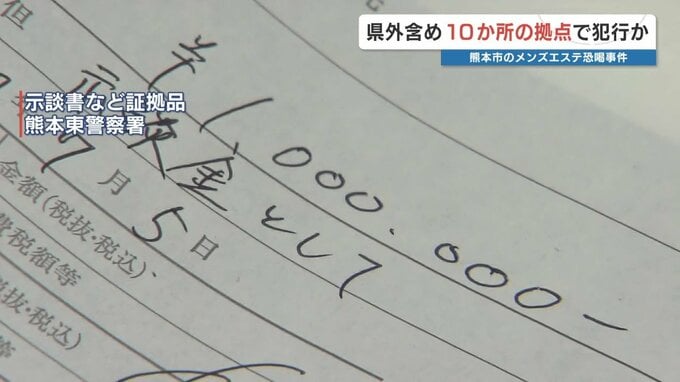 県外含め10か所の拠点で犯行か
熊本市のメンズエステ恐喝事件
示談書など証拠品
熊本東警察署
但
¥1,000.000-
金として
7月5日
金額(税抜・税込)
費税額等
税抜・税込)
等